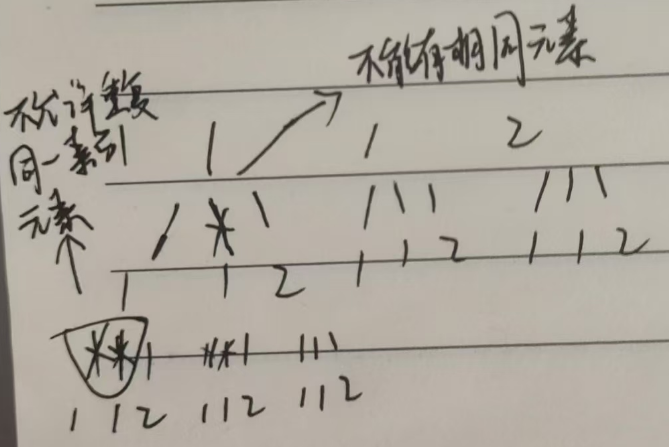 不能有相同元素
不允许重复
同一索引
元素
1 1 2
1 1 2 1 1 2 1 1 2
1 1 2 1 1 2 1 1 2